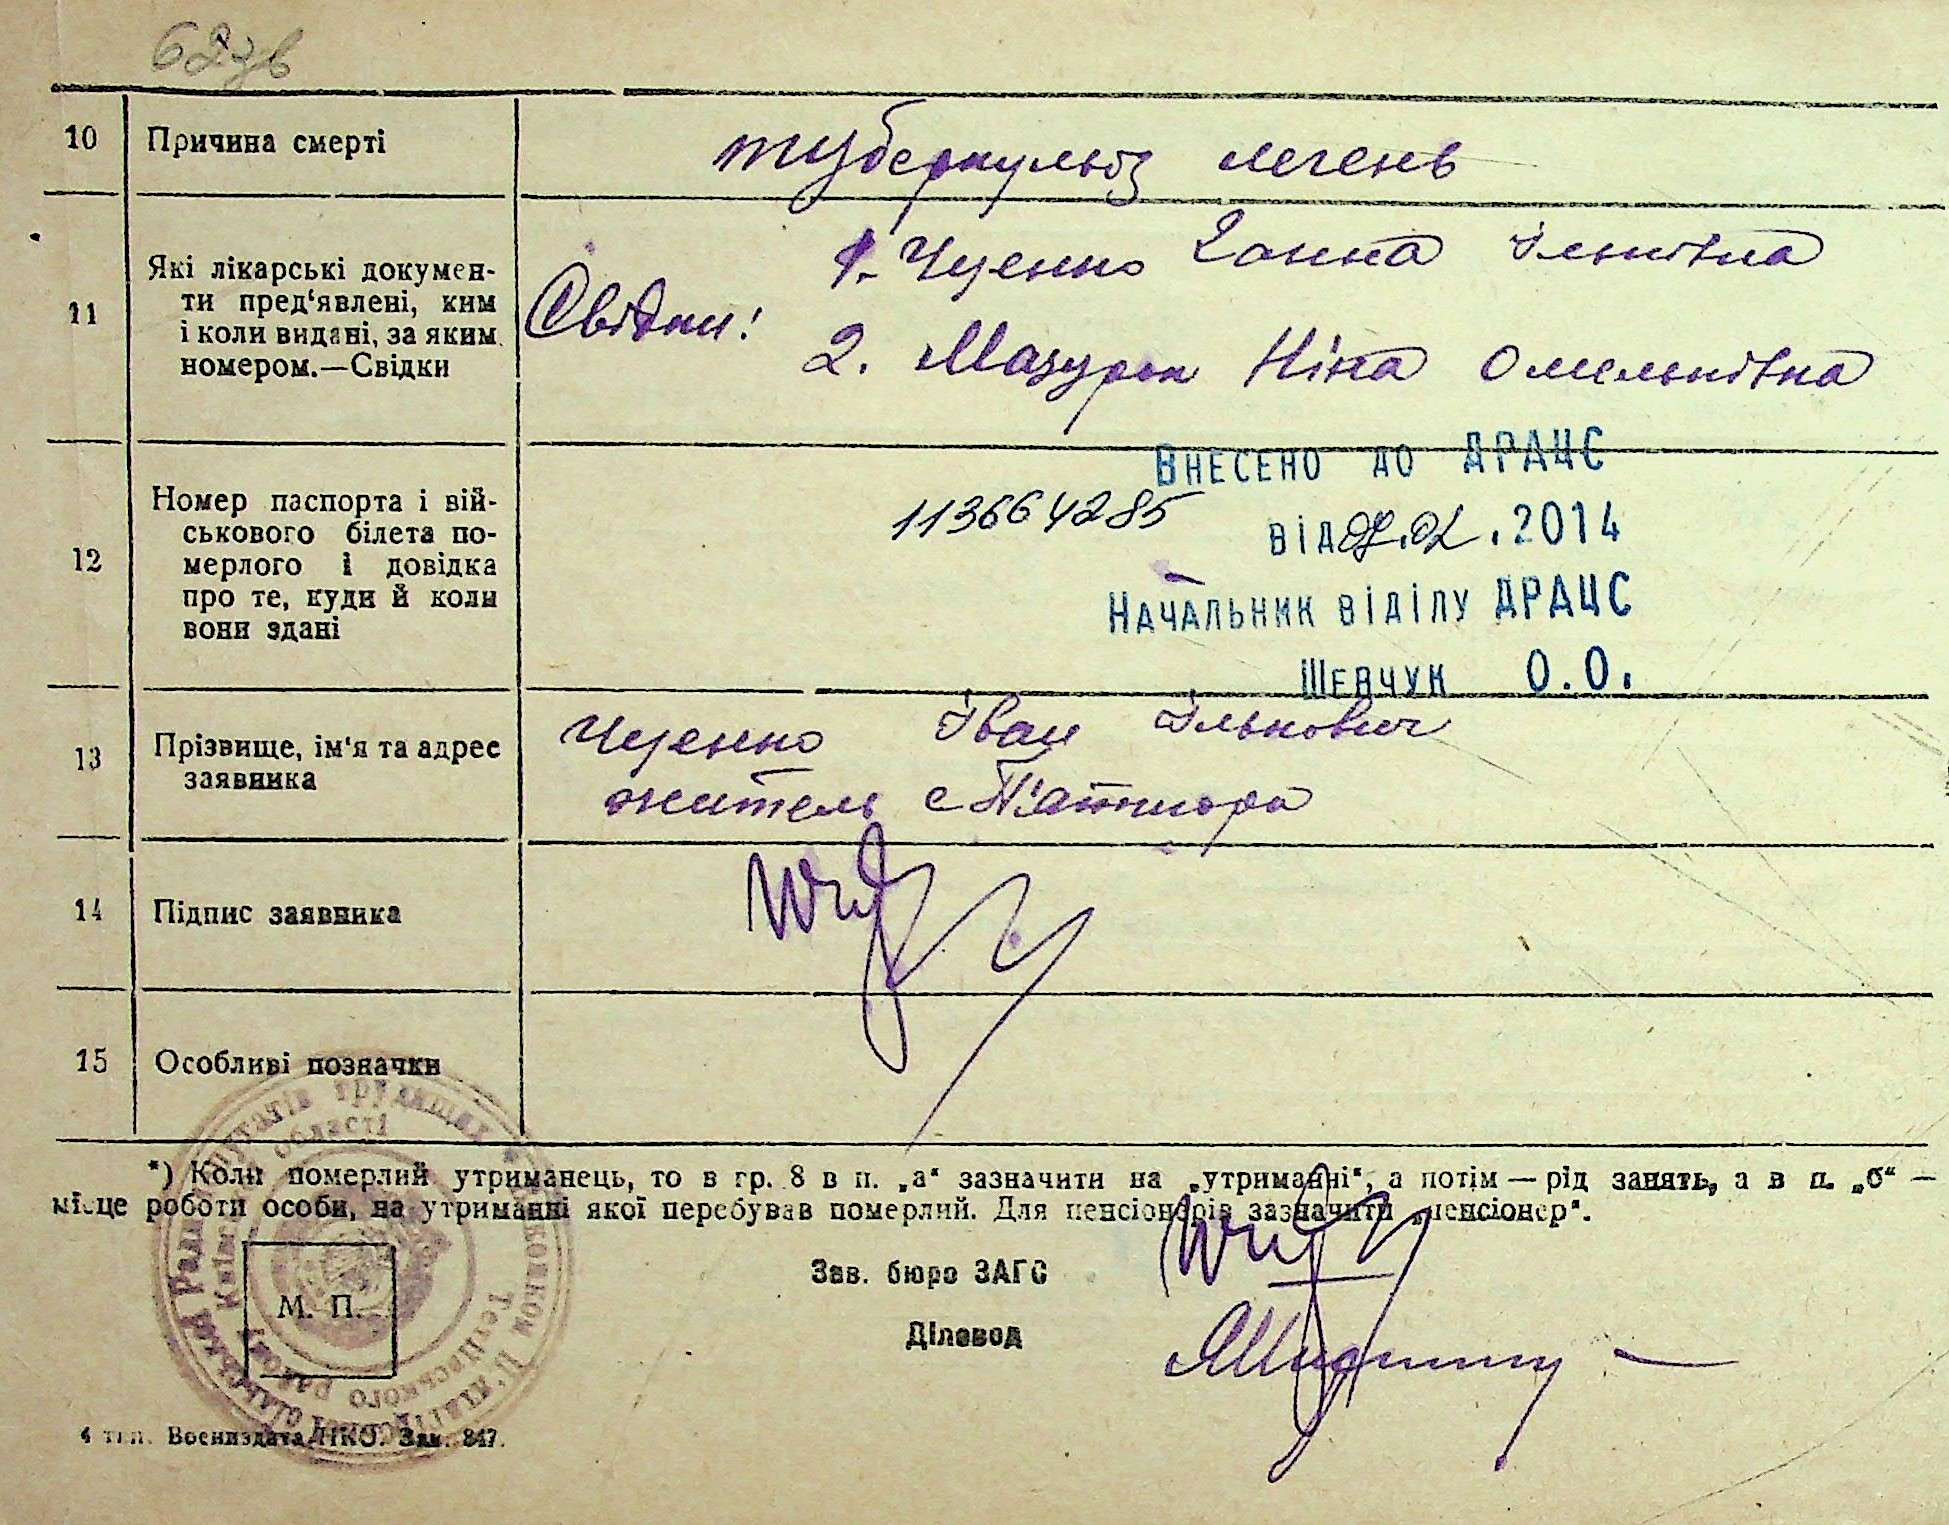 62зв
10 Причина смерті туберкульоз легень
11 Які лікарські докумен-
ти пред‘явлені, ким
і коли видані, за яким
номером.—Свідки
Свідки:
1. Чуенко Ганна Ільківна
2. Мазурок Ніна Омельківна
12 Номер паспорта і вій-
ськового білета по-
мерлого і довідка
про те, куди й коли
вони здані
113664285
Внесено до ДРАЦС
від .2014
Начальник відділу ДРАЦС
Шевчук О.О.
13 Прізвище, ім‘я та адрес
заявника
Чуенко ІванІлькович
житель с П'ятигора
14 Підпис заявника
15 Особливі позначки
*) Коли померлий утриманець, то в гр. 8 в п. „а“ зазначити на „утриманні“, а потім — рід занять, а в п. „б“ —
місце роботи особи, на утриманні якої перебував померлий. Для пенсіонерів зазначити „пенсіонер“.
Зав. бюро ЗАГС
М. П.
Діловод
4 тип. Воениздата НКО. Зак. 847.
трудящих
області
Тетіївського району